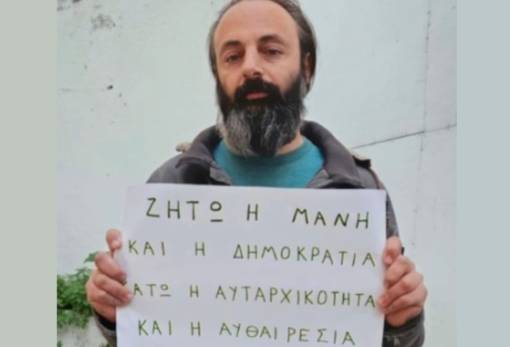 ΖΗΤΩ Η ΜΑΝΗ
ΚΑΙ Η ΔΗΜΟΚΡΑΤΙΑ
ΑΤΩ Η ΑΥΤΑΡΧΙΚΟΤΗΤΑ
ΚΑΙ Η ΑΥΘΑΙΡΕΣΙΑ